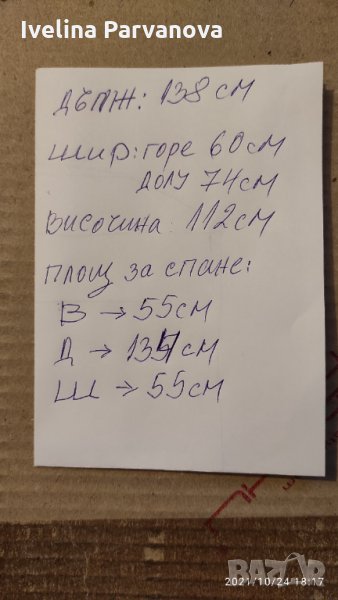 Ivelina Parvanova
ДЪЛЖ: 138 см
ШИР: ГОРЕ 60 см
ДОЛУ 74 см
ВИСОЧИНА: 112 см
ПЛОЩ ЗА СПАНЕ:
В → 55 см
Д → см
Ш → 55 см
БАЗАР
2021/10/24 18:17